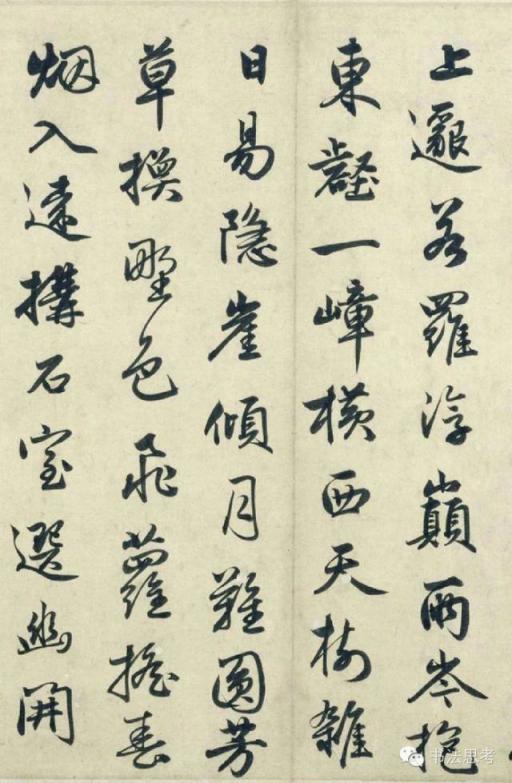 上邈若羅浮巔兩岑抱
東壑一嶂橫西天樹雜
日易隱崖傾月難圓芳
草換野色飛蘿搖春
烟入遠搆石室選幽開
书法思考